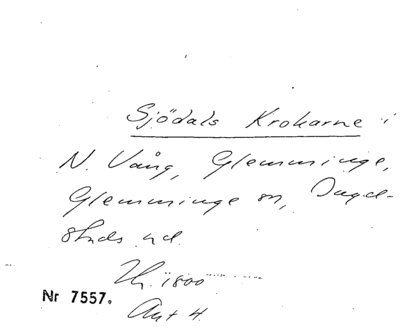 Sjödals Krokarne i
N. Vång, Glemminge,
Glemminge sn, Inge-
stads hd.
1800
Nr 7557.
Ant 4.